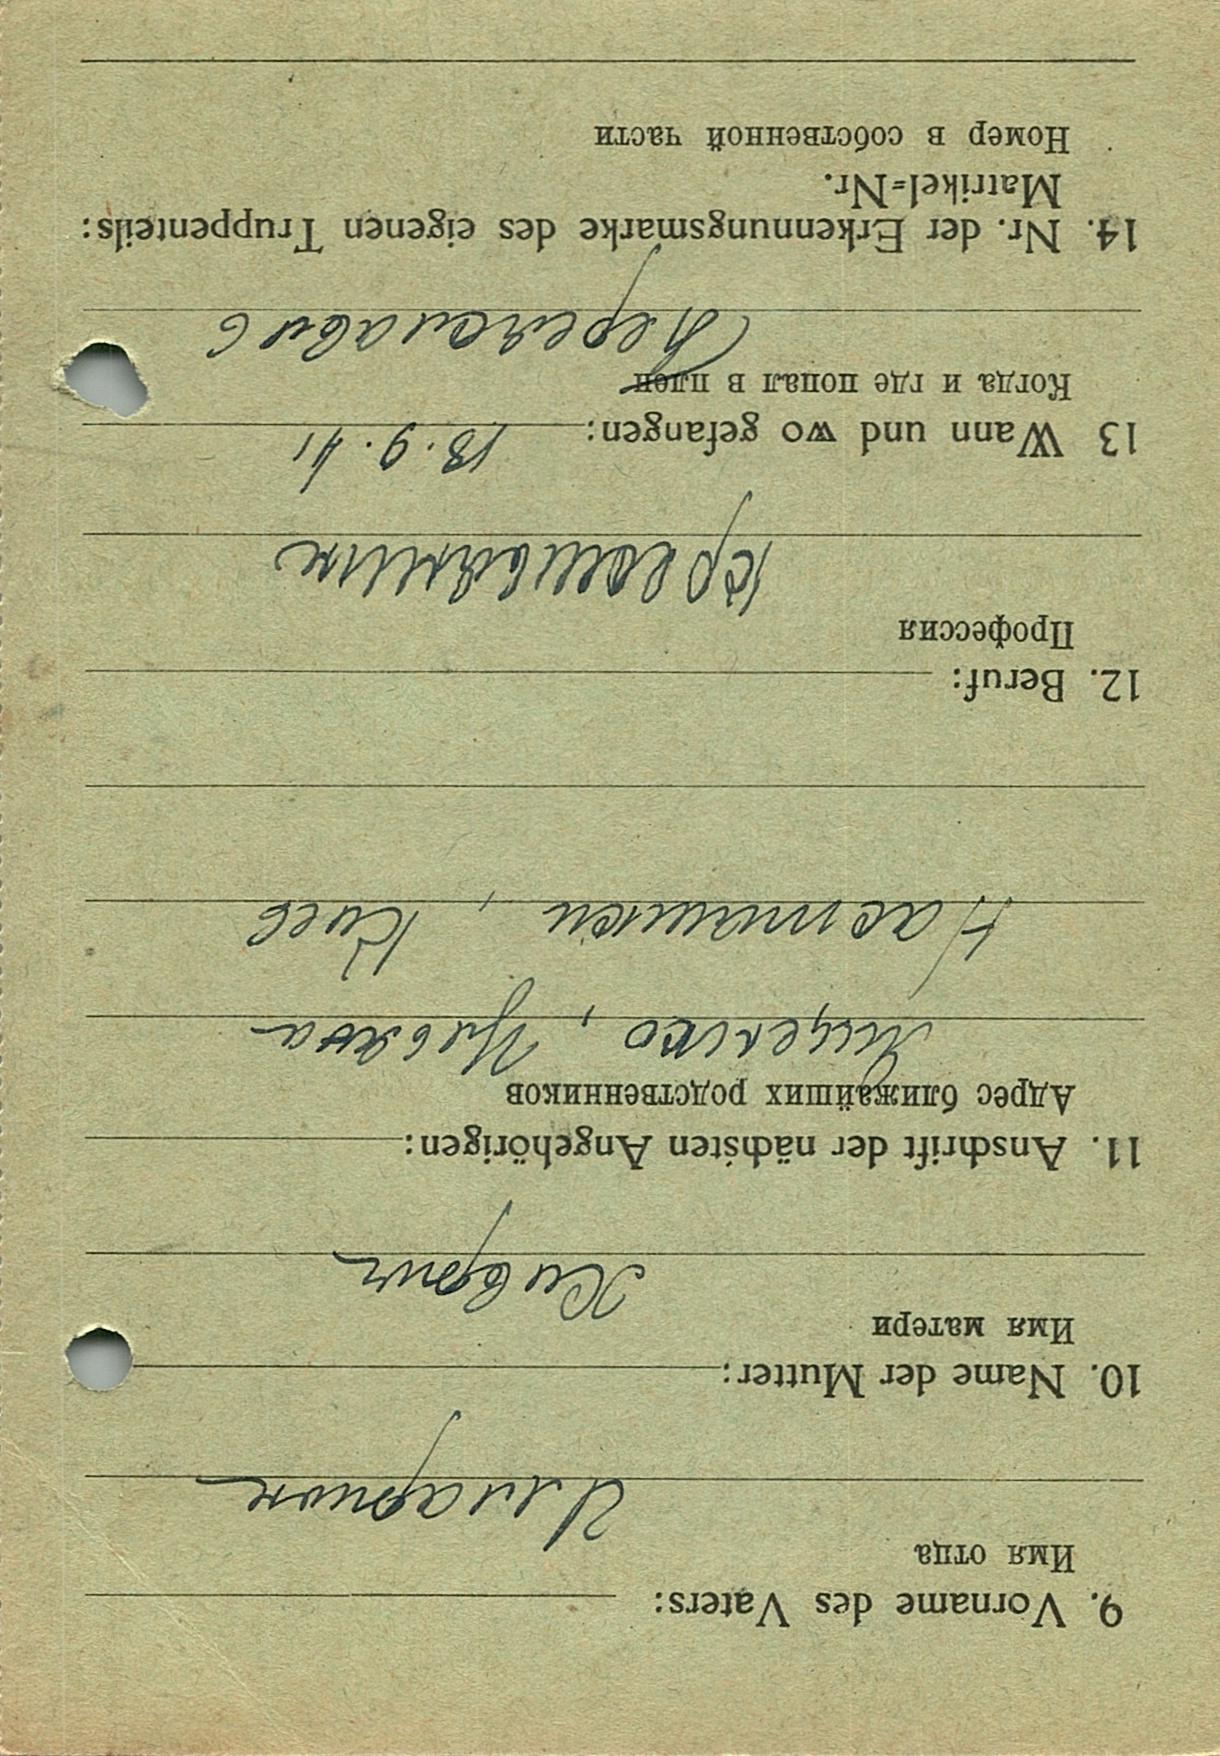 9. Vorname des Vaters:
Имя отца
Иларион
10. Name der Mutter:
Имя матери
Хиврин
11. Anschrift der nächsten Angehörigen:
Адрес ближайших родственников
Насташки, Киев
12. Beruf:
Профессия
13 Wann und wo gefangen: 13.9.41
Когда и где попал в плен
14. Nr. der Erkennungsmarke des eigenen Truppenteils:
Matrikel=Nr.
Номер в собственной части